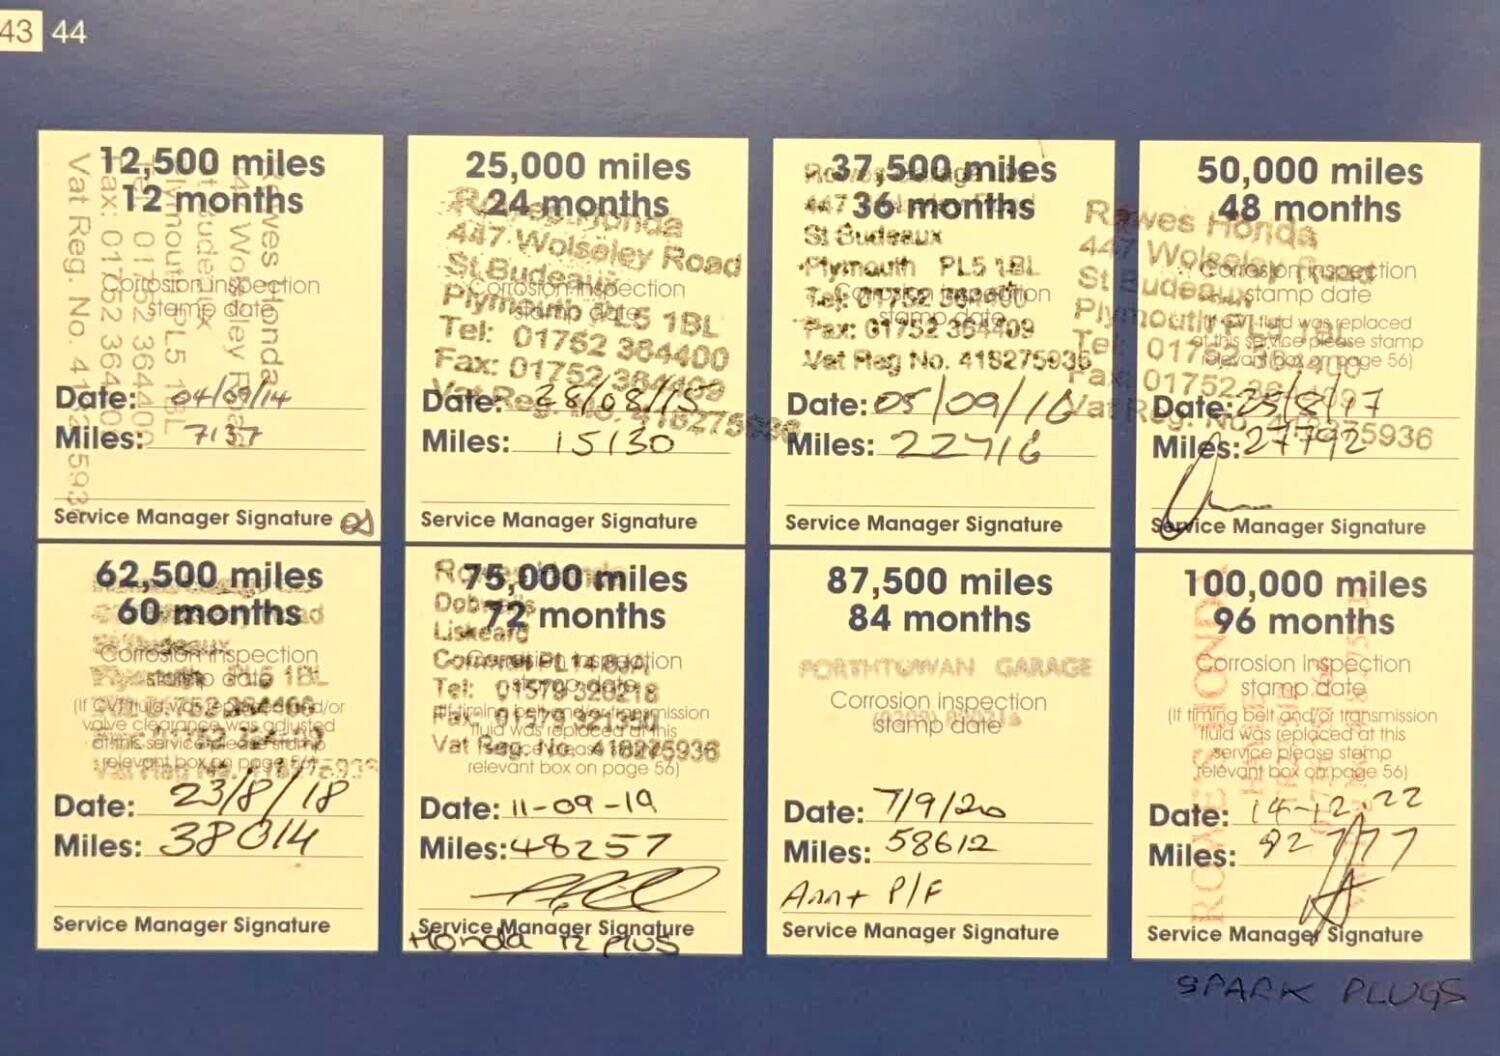 43 44
12,500 miles
12 months
Rowes Honda
447 Wolseley Road
St Budeaux
Plymouth PL5 1BL
Tel: 01752 364400
Fax: 01752 364409
Vat Reg. No. 418275936
Corrosion inspection
stamp date
Date: 04/09/14
Miles: 7137
Service Manager Signature
25,000 miles
24 months
Rowes Honda
447 Wolseley Road
St Budeaux
Plymouth PL5 1BL
Tel: 01752 364400
Fax: 01752 364409
Vat Reg. No. 418275936
Corrosion inspection
stamp date
Date: 28/08/15
Miles: 15130
Service Manager Signature
37,500 miles
36 months
447
St Budeaux
Plymouth PL5 1BL
Tel: 01752 364400
Fax: 01752 364409
Vat Reg No. 418275936
Corrosion inspection
stamp date
Date: 05/09/16
Miles: 22716
Service Manager Signature
50,000 miles
48 months
Rowes Honda
447 Wolseley Road
St Budeaux
Plymouth PL5 1BL
Tel: 01752 364400
Fax: 01752
Vat Reg. No. 418275936
Corrosion inspection
stamp date
(If CVT fluid was replaced
at this service please stamp
relevant box on page 56)
Date: 25/8/17
Miles: 27792
Service Manager Signature
62,500 miles
60 months
Road
St Budeaux
Plymouth PL5 1BL
Corrosion inspection
stamp date
(If CVT fluid was replaced and/or
valve clearance was adjusted
at this service please stamp
relevant box on page 56)
Date: 23/8/18
Miles: 38014
Service Manager Signature
75,000 miles
72 months
Rowes Honda
Dobwalls
Liskeard
Cornwall PL14
Tel: 01579 320218
Fax: 01579 321350
Vat Reg. No. 418275936
Corrosion inspection
stamp date
(If timing belt and/or transmission
fluid was replaced at this
service please stamp
relevant box on page 56)
Date: 11-09-19
Miles: 48257
Service Manager Signature
Honda 12 plus
87,500 miles
84 months
PORTHTOWAN GARAGE
Corrosion inspection
stamp date
Date: 7/9/20
Miles: 58612
Ann+ P/F
Service Manager Signature
100,000 miles
96 months
ROWES HONDA
Corrosion inspection
stamp date
(If timing belt and/or transmission
fluid was replaced at this
service please stamp
relevant box on page 56)
Date: 14-12.22
Miles: 82777
Service Manager Signature
SPARK PLUGS